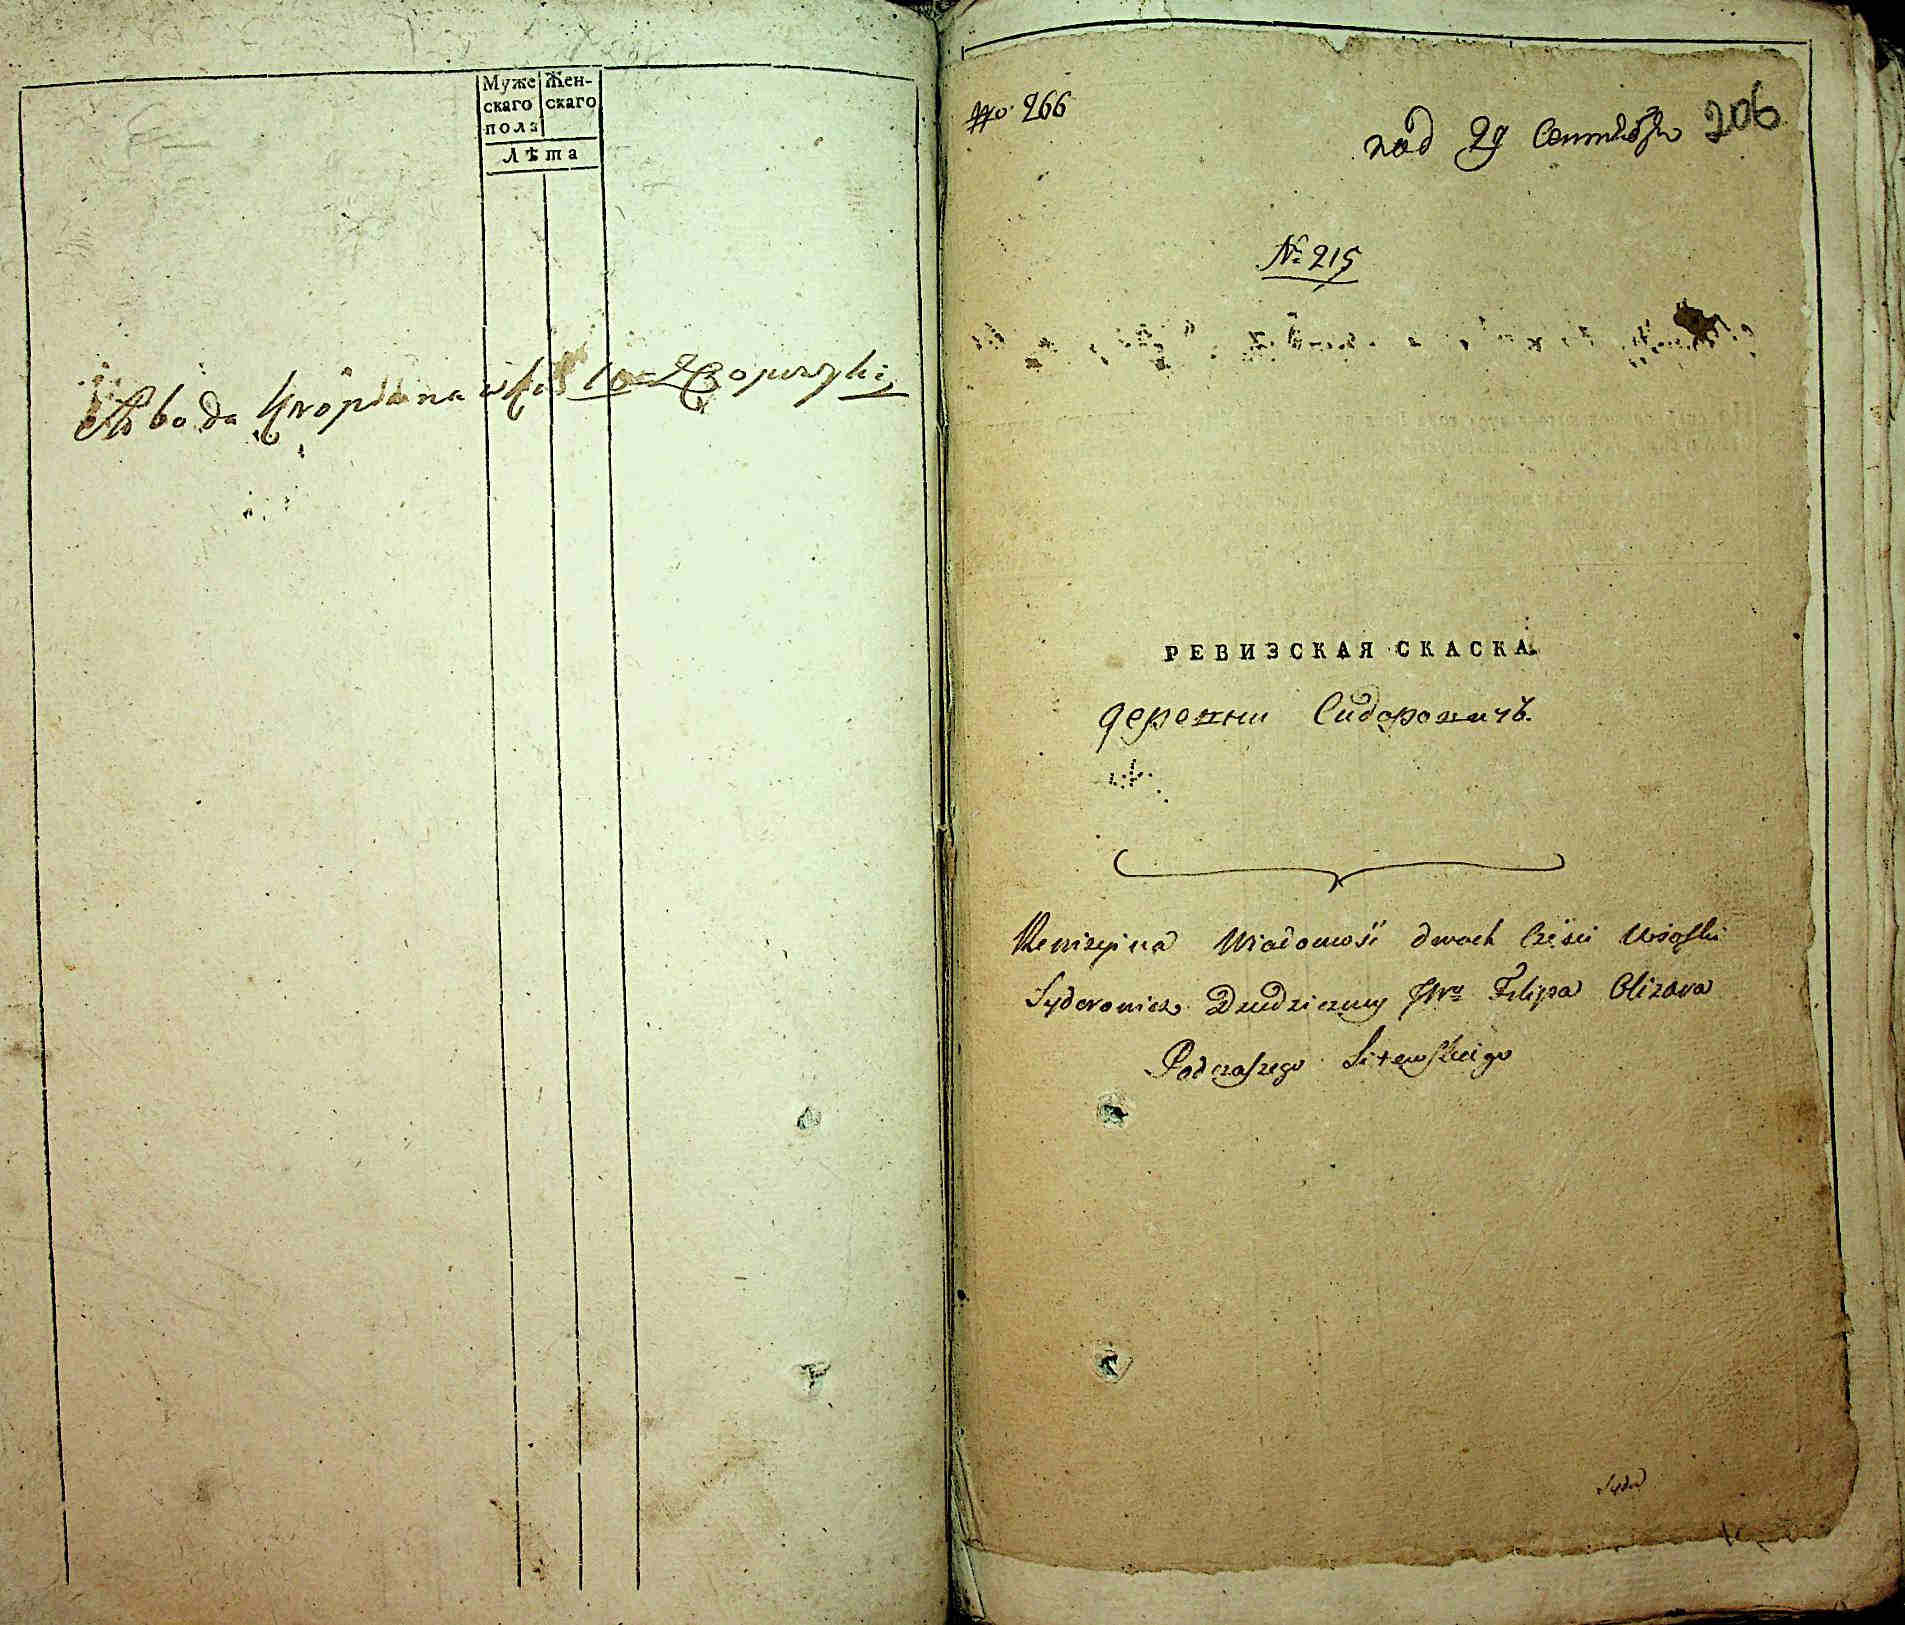 Муже Жен-
скаго скаго
пола
Лѣта
No 266
под 29 Сентября 206
№ 215
РЕВИЗСКАЯ СКАСКА
деревни Сидоровичъ.
Rewizyina Wiadomość dwoch Części Wioski
Syderowicz Dziedziczney JWo Filipa Olizara
Podczaszego Litewskiego